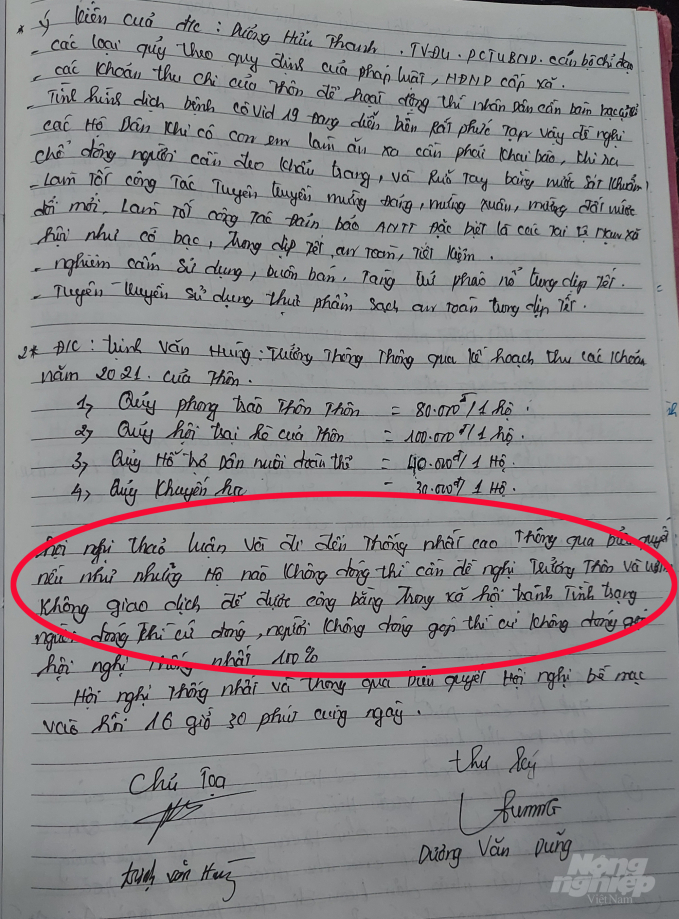 * ý kiến của đ/c : Dương Hữu Thanh . TVĐU . PCTUBND . cán bộ chỉ đạo
- các loại quỹ theo quy định của pháp luật, HĐND cấp xã.
- các khoản thu chi của thôn để hoạt động thì nhân dân cần bàn bạc
- Tình hình dịch bệnh côvid 19 đang diễn biến rất phức tạp vậy đề nghị
các Hộ Dân khi có con em làm ăn xa cần phải khai báo, khi ra
chỗ đông người cần đeo khẩu trang, và rửa tay bằng nước sát khuẩn
- Làm tốt công tác tuyên truyền mừng đảng, mừng xuân, mừng đất nước
đổi mới. Làm tốt công tác đảm bảo ANTT đặc biệt là các tai tệ nạn xã
hội như cờ bạc, trong dịp tết, an toàn, tiết kiệm.
- nghiêm cấm sử dụng, buôn bán, tàng trữ pháo nổ trong dịp tết.
- Tuyên truyền sử dụng thực phẩm sạch an toàn trong dịp tết.
2* Đ/c : trịnh văn Hùng : Trưởng Thông Thông qua kế hoạch thu các khoản
năm 2021 . của thôn.
1, Quỹ phong trào thôn thôn = 80.000đ/1 hộ .
2, Quỹ hội trại hè của thôn = 100.000đ/1 hộ.
3, Quỹ Hỗ trợ Dân nuôi đoàn thể = 40.000đ/1 Hộ.
4, Quỹ khuyến học = 30.000đ/1 Hộ
Hội nghị thảo luận và đi đến thống nhất cao thông qua biểu quyết
nếu như những Hộ nào không đóng thì cần đề nghị trưởng thôn và
không giao dịch để được công bằng trong xã hội tránh tình trạng
người đóng thì cứ đóng, người không đóng góp thì cứ không đóng góp
hội nghị thống nhất 100%
Hội nghị thống nhất và thông qua biểu quyết Hội nghị bế mạc
vào hồi 16 giờ 30 phút cùng ngày .
Chủ Tọa
thư ký
trịnh văn Hùng
Dương Văn Dũng
Nông nghiệp
Việt Nam